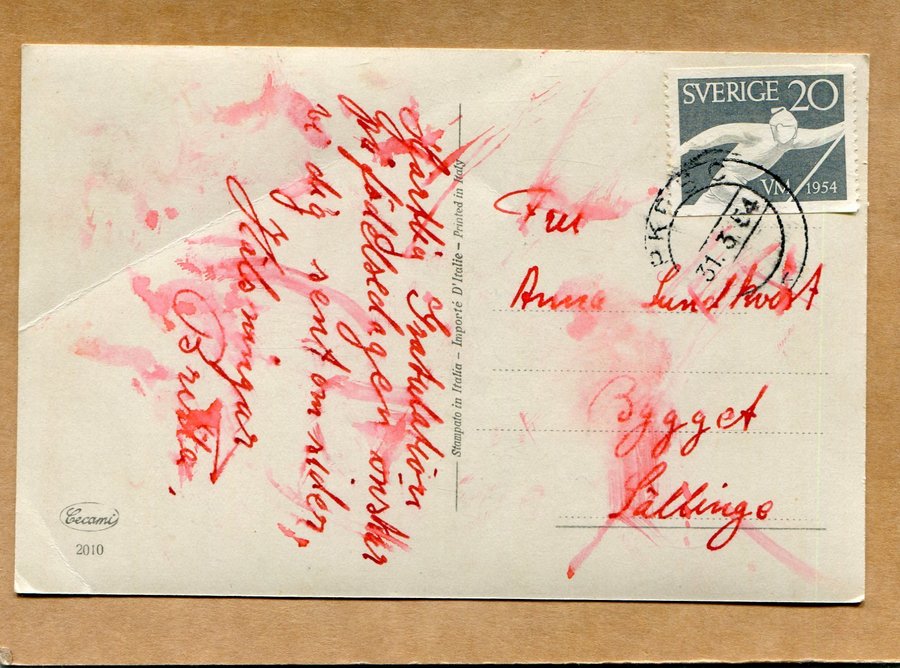 Hjärtlig Gratulation
på födelsedagen önskar
vi dig sent omsider,
Hälsningar
Britta.
Stampato in Italia - Importé D'Italie - Printed in Italy
Cecami
2010
SVERIGE 20
VM 1954
31.3.54
Fru
Anna Lundkvist
Bygget
Sällinge